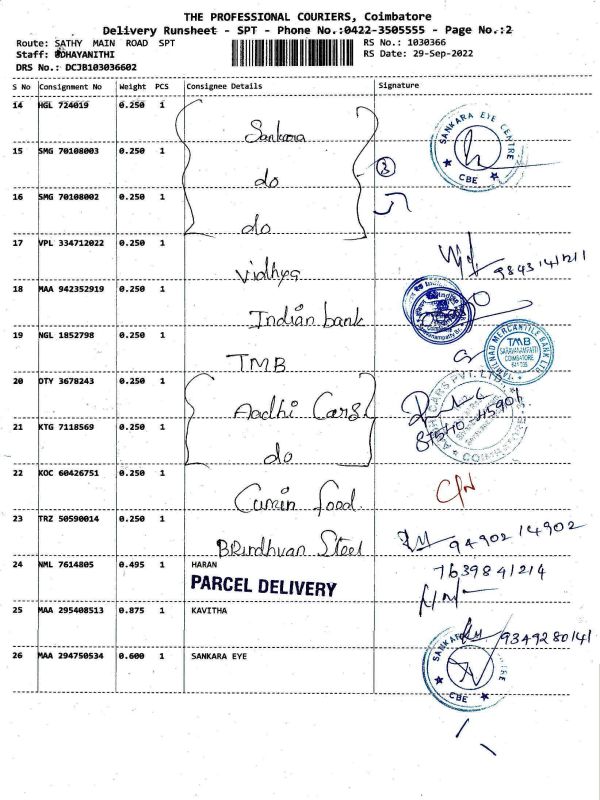 THE PROFESSIONAL COURIERS, Coimbatore
Delivery Runsheet - SPT - Phone No.:0422-3505555 - Page No.:2
Route: SATHY MAIN ROAD SPT RS No.: 1030366
Staff: UDHAYANITHI RS Date: 29-Sep-2022
DRS No.: DCJB103036602
S No Consignment No Weight PCS Consignee Details Signature
14 HGL 724019 0.250 1 Sankara
SANKARA EYE CENTRE
CBE
15 SMG 70108003 0.250 1 do
3
16 SMG 70108002 0.250 1 do
17 VPL 334712022 0.250 1 Vidhya
18 MAA 942352919 0.250 1 Indian bank
19 NGL 1852798 0.250 1 TMB
TAMILNAD MERCANTILE BANK LTD
TMB
SARAVANAMPATTI
COIMBATORE
20 DTY 3678243 0.250 1 Aadhi Cars
CARS PVT. LTD.
COIMBATORE
21 KTG 7118569 0.250 1 do
22 KOC 60426751 0.250 1 food
23 TRZ 50590014 0.250 1 BRindhvan Steel 94902 14902
24 NML 7614805 0.495 1 HARAN 7639841214
PARCEL DELIVERY
25 MAA 295408513 0.875 1 KAVITHA 9349280141
26 MAA 294750534 0.600 1 SANKARA EYE
SANKARA
CBE